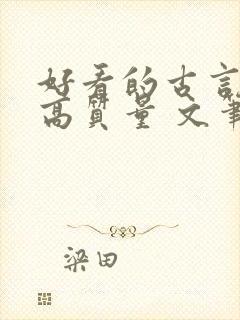 好看的古言
高质量 文笔
梁田